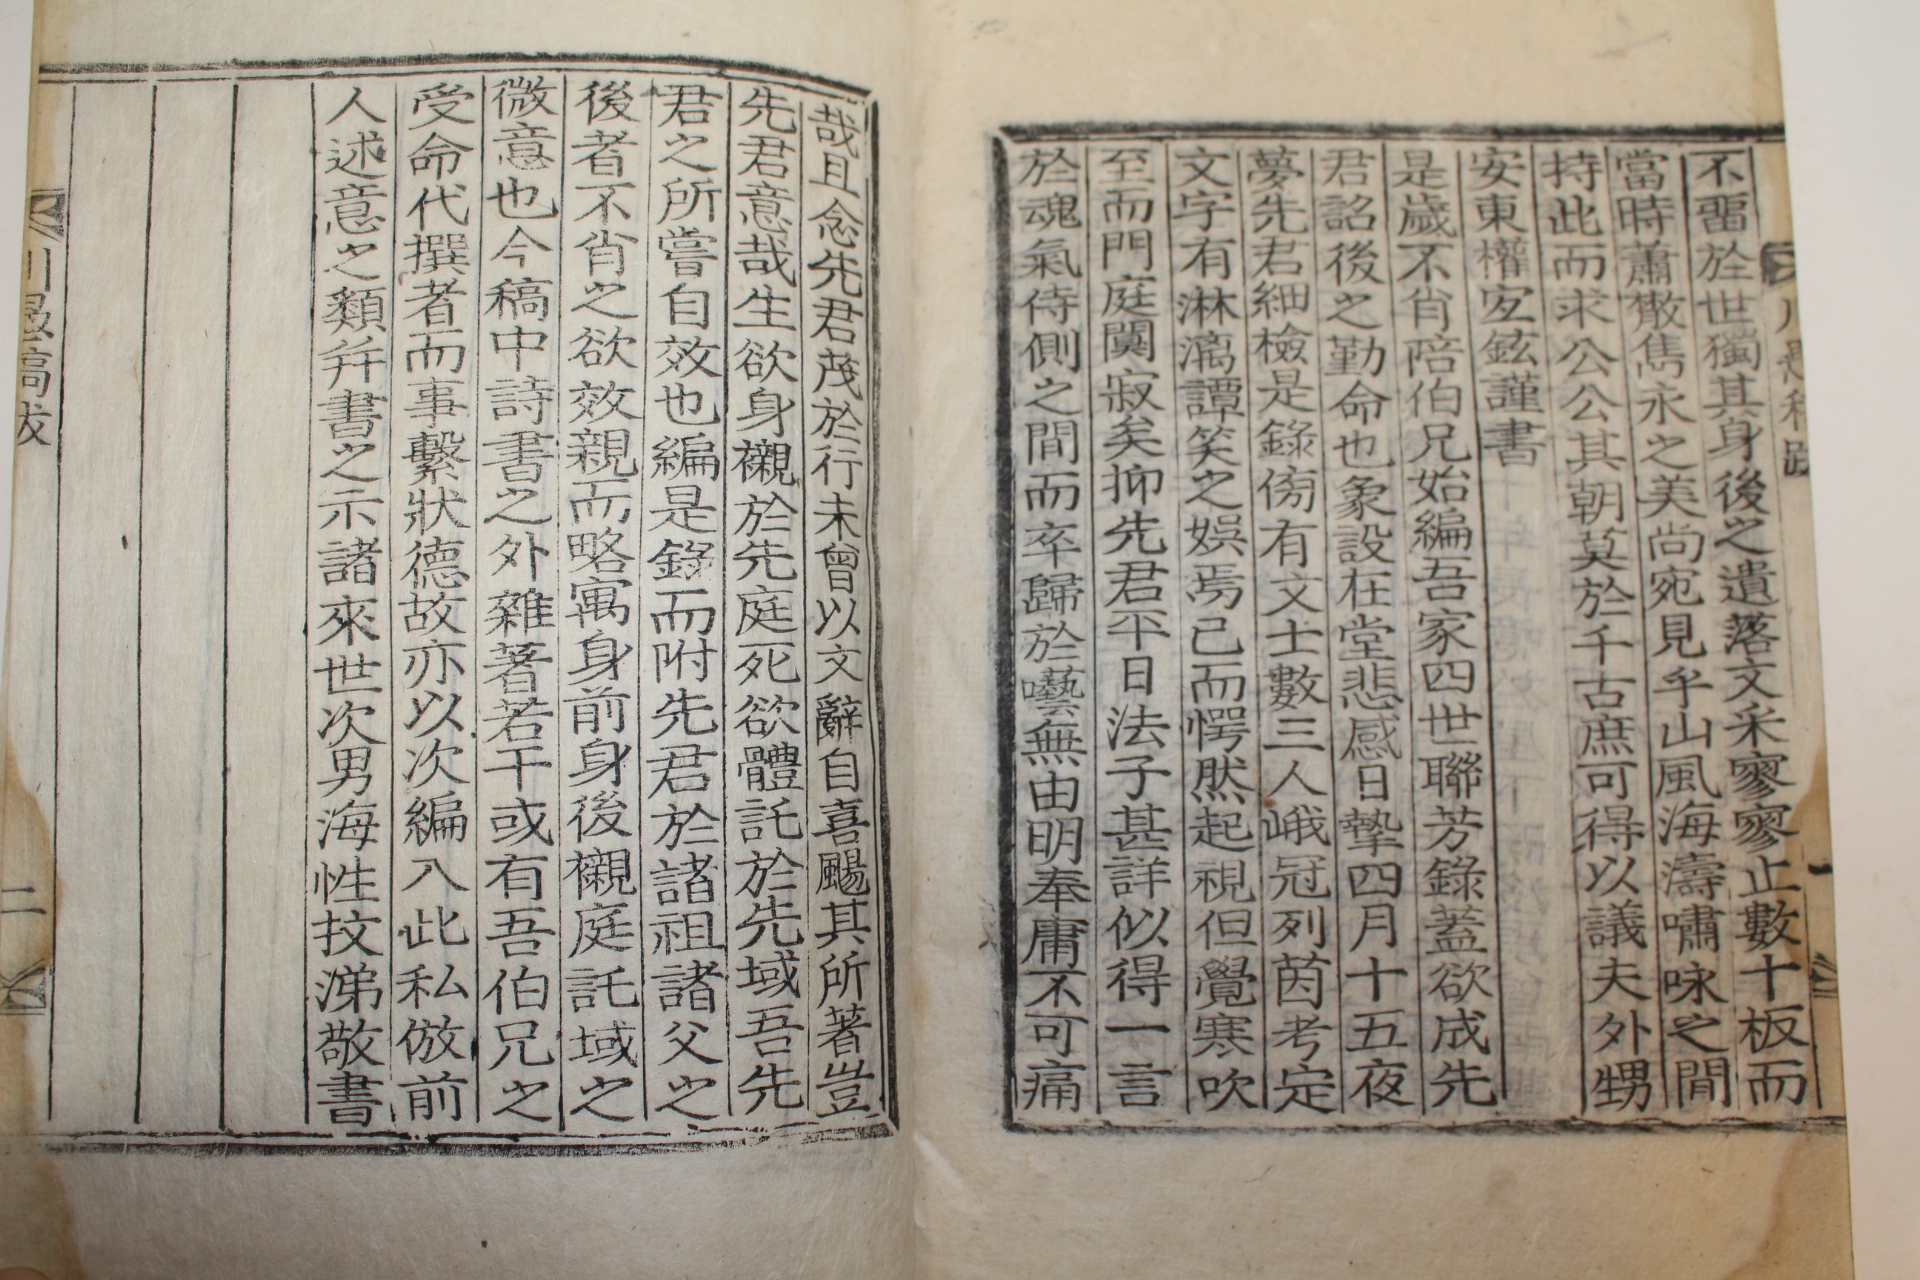 不畱於世獨其身後之遺落文采寥寥止數十板而
當時蕭散雋永之美尚宛見乎山風海濤嘯咏之間
持此而求公公其朝莫於千古庶可得以議夫外甥
安東權宖鉉謹書
是歲不肖陪伯兄始編吾家四世聯芳錄蓋欲成先
君詔後之勤命也象設在堂悲感日摯四月十五夜
夢先君細檢是錄傍有文士數三人峨冠列茵考定
文字有淋漓譚笑之娛焉已而愕然起視但覺寒吹
至而門庭闃寂矣抑先君平日法子甚詳似得一言
於魂氣侍側之間而卒歸於囈無由明奉庸不可痛
哉且念先君茂於行未曾以文辭自喜颺其所著豈
先君意哉生欲身襯於先庭死欲體託於先域吾先
君之所嘗自效也編是錄而附先君於諸祖諸父之
後者不肖之欲效親而略寓身前身後襯庭託域之
微意也今稿中詩書之外雜著若干或有吾伯兄之
受命代撰者而事繫狀德故亦以次編入此私倣前
人述意之類幷書之示諸來世次男海性抆涕敬書
川愚稿跋
二